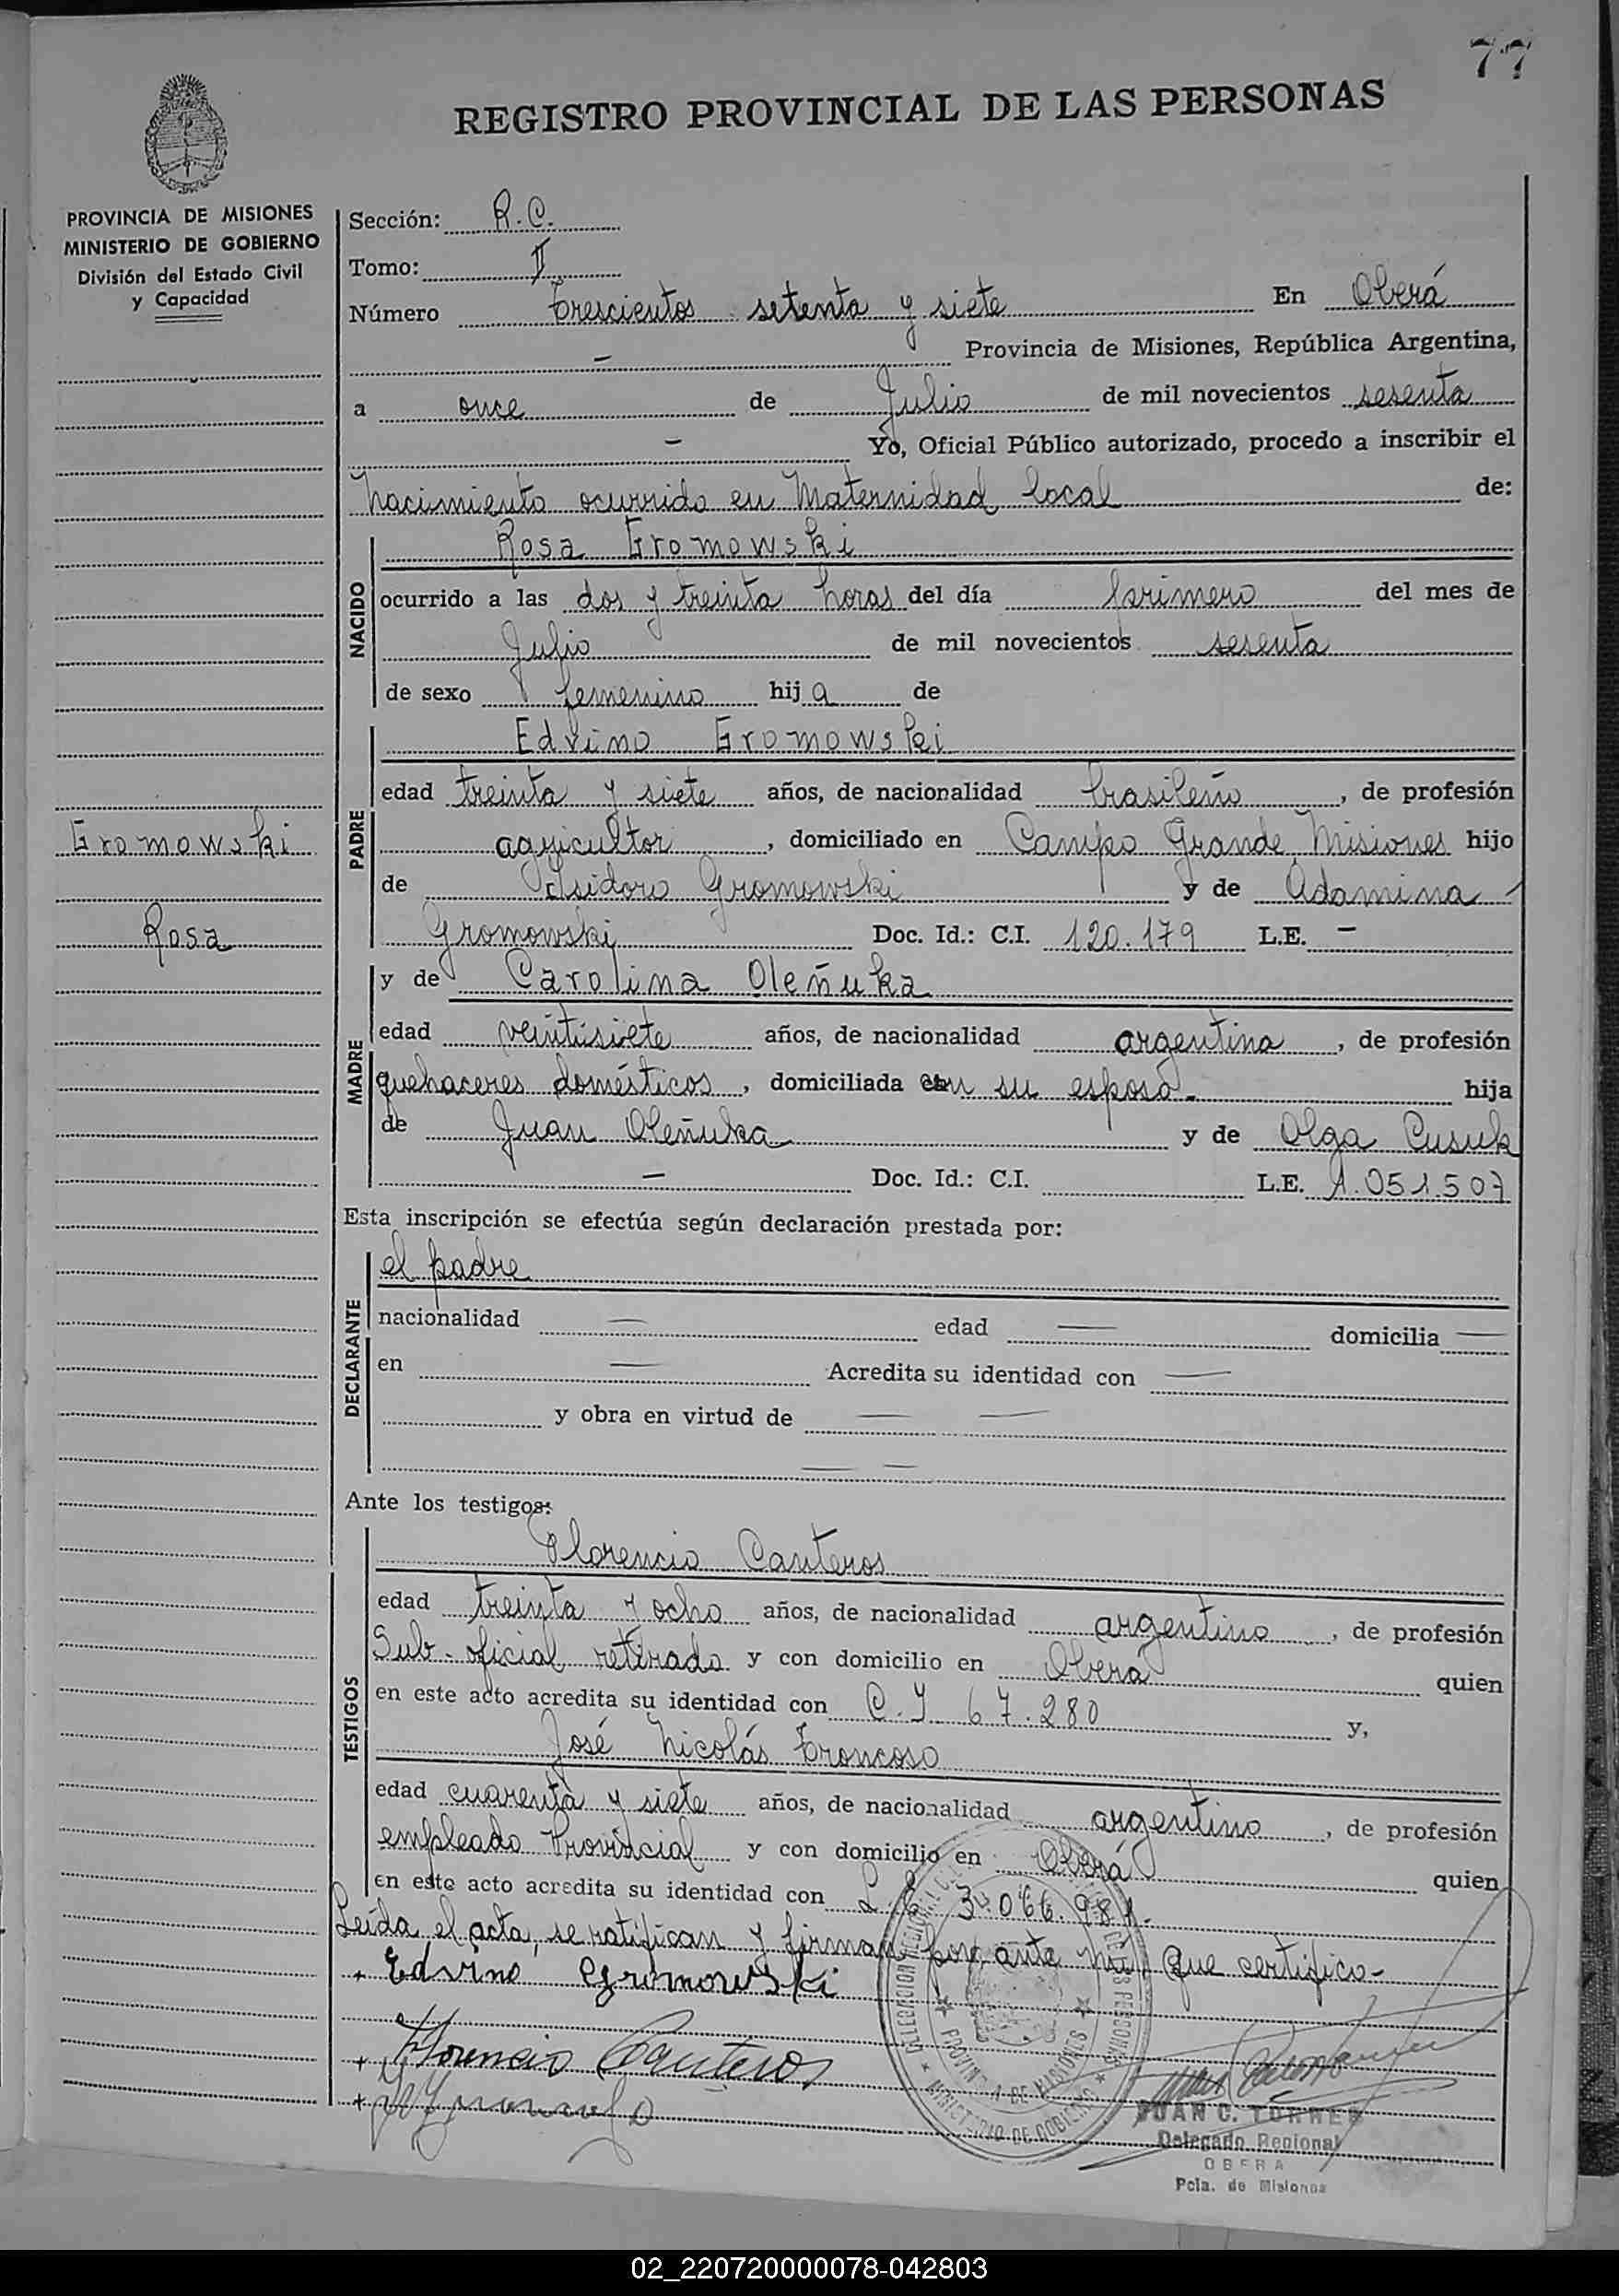 77
REGISTRO PROVINCIAL DE LAS PERSONAS
PROVINCIA DE MISIONES
MINISTERIO DE GOBIERNO
División del Estado Civil
y Capacidad
Sección: R.C.
Tomo: II
Número trescientos setenta y siete En Oberá
— Provincia de Misiones, República Argentina,
a once de Julio de mil novecientos sesenta
— Yo, Oficial Público autorizado, procedo a inscribir el
nacimiento ocurrido en Maternidad local de:
NACIDO
Rosa Gromowski
ocurrido a las dos y treinta horas del día primero del mes de
Julio de mil novecientos sesenta
de sexo femenino hija de
PADRE
Edvino Gromowski
edad treinta y siete años, de nacionalidad brasileño, de profesión
agricultor, domiciliado en Campo Grande, Misiones hijo
de Isidoro Gromowski y de Adamina
Gromowski Doc. Id.: C.I. 120.179 L.E. —
Gromowski
Rosa
MADRE
y de Carolina Oleñuka
edad veintisiete años, de nacionalidad argentina, de profesión
quehaceres domésticos, domiciliada con su esposo.- hija
de Juan Oleñuka y de Olga Cusuk
— Doc. Id.: C.I. L.E. 1.051.507
Esta inscripción se efectúa según declaración prestada por:
DECLARANTE
el padre
nacionalidad — edad — domicilia —
en — Acredita su identidad con —
y obra en virtud de — —
— —
Ante los testigos:
TESTIGOS
Florencio Canteros
edad treinta y ocho años, de nacionalidad argentino, de profesión
Sub-oficial retirado y con domicilio en Oberá quien
en este acto acredita su identidad con C.I 67.280 y,
José Nicolás Troncoso
edad cuarenta y siete años, de nacionalidad argentino, de profesión
empleado Provincial y con domicilio en Oberá quien
en este acto acredita su identidad con L.E. 3.066.981.
Leída el acta, se ratifican y firman por ante mí, que certifico-
+ Edvino Gromowski
+ Florencio Canteros
PROVINCIA DE MISIONES
MINISTERIO DE GOBIERNO
JUAN C. TORRES
Delegado Regional
OBERA
Pcia. de Misiones
02_220720000078-042803